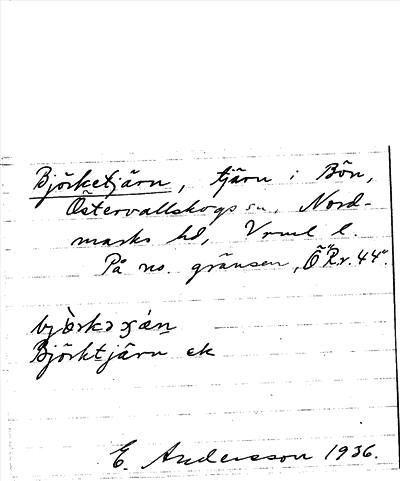 Björketjärn, tjärn i Bön,
Östervallskogs sn, Nord-
marks hd, Vrml l.
På no. gränsen, "ÖR.r.44".
Björktjärn ek
E. Andersson 1936.